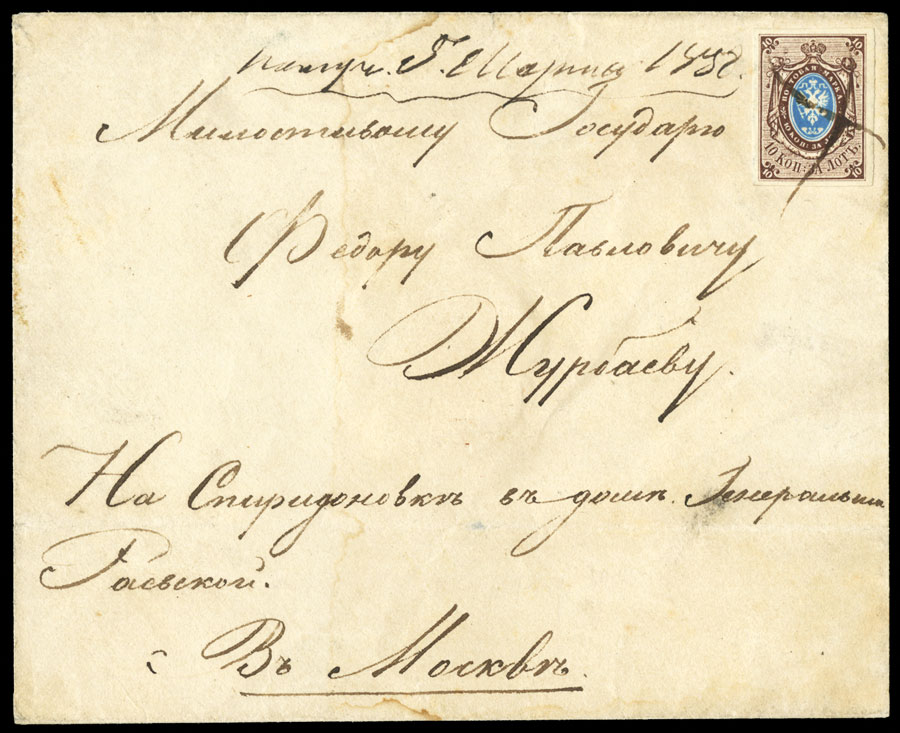 получ. 5. Марта 1858.
Милостивому Государю
Федору Павловичу
Журбаеву.
На Спиридоновкѣ въ домѣ. Генеральши
Раевской.
Въ Москвѣ.
10 10
ПОЧТОВАЯ МАРКА
10 КОП: ЗА ЛОТЪ.
10 10